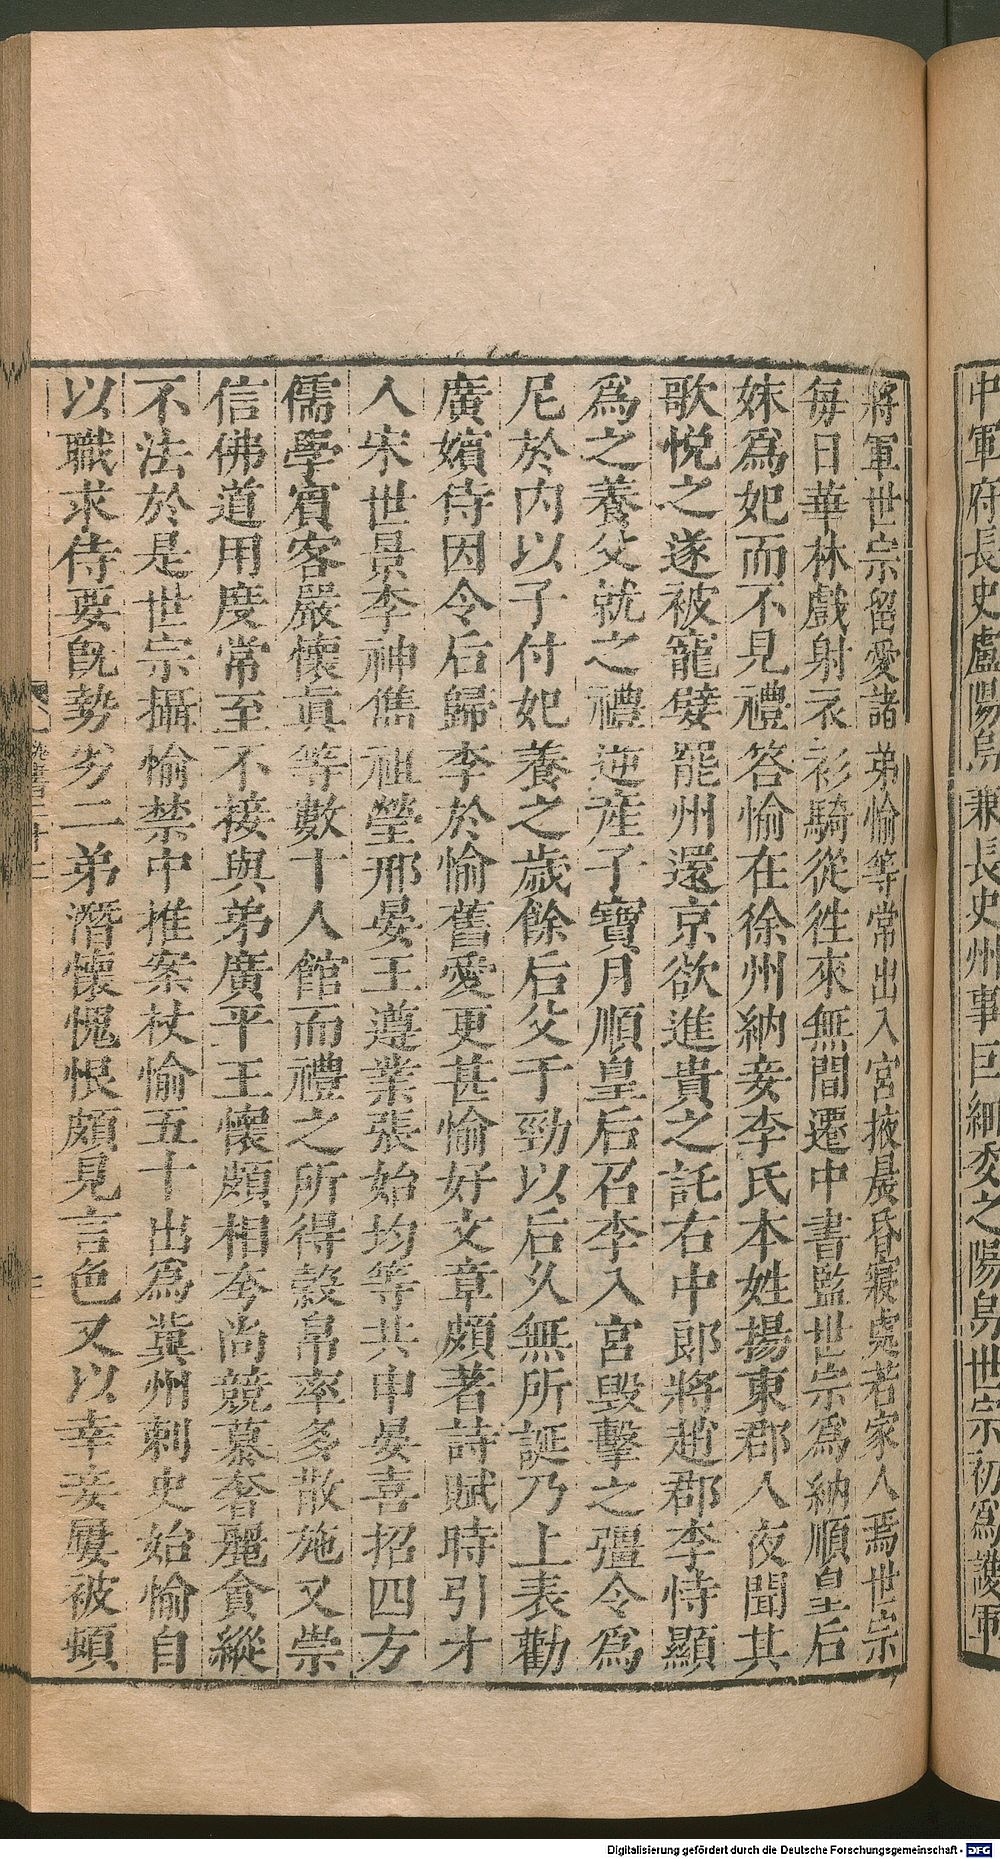 中軍府長史盧陽烏兼長史州事巨細委之陽烏世宗初爲護軍
將軍世宗留愛諸弟愉等常出入宮掖晨昏寢處若家人焉世宗
每日華林戲射衣衫騎從徃來無間遷中書監世宗爲納順皇后
妹爲妃而不見禮答愉在徐州納妾李氏本姓揚東郡人夜聞其
歌悦之遂被寵嬖罷州還京欲進貴之託右中郎將趙郡李恃顯
爲之養父就之禮逆產子寶月順皇后召李入宮毁擊之彊令爲
尼於内以子付妃養之歲餘后父于勁以后久無所誕乃上表勸
廣嬪侍因令后歸李於愉舊愛更甚愉好文章頗著詩賦時引才
人宋世景李神儁祖瑩邢晏王遵業張始均等共申宴喜招四方
儒學賓客嚴懷眞等數十人館而禮之所得穀帛率多散施又崇
信佛道用度常至不接與弟廣平王懷頗相夸尚競慕奢麗貪縱
不法於是世宗攝愉禁中推案杖愉五十出爲冀州刺史始愉自
以職求侍要旣勢劣二弟潛懷愧恨頗見言色又以幸妾屢被頓
Digitalisierung gefördert durch die Deutsche Forschungsgemeinschaft - DFG